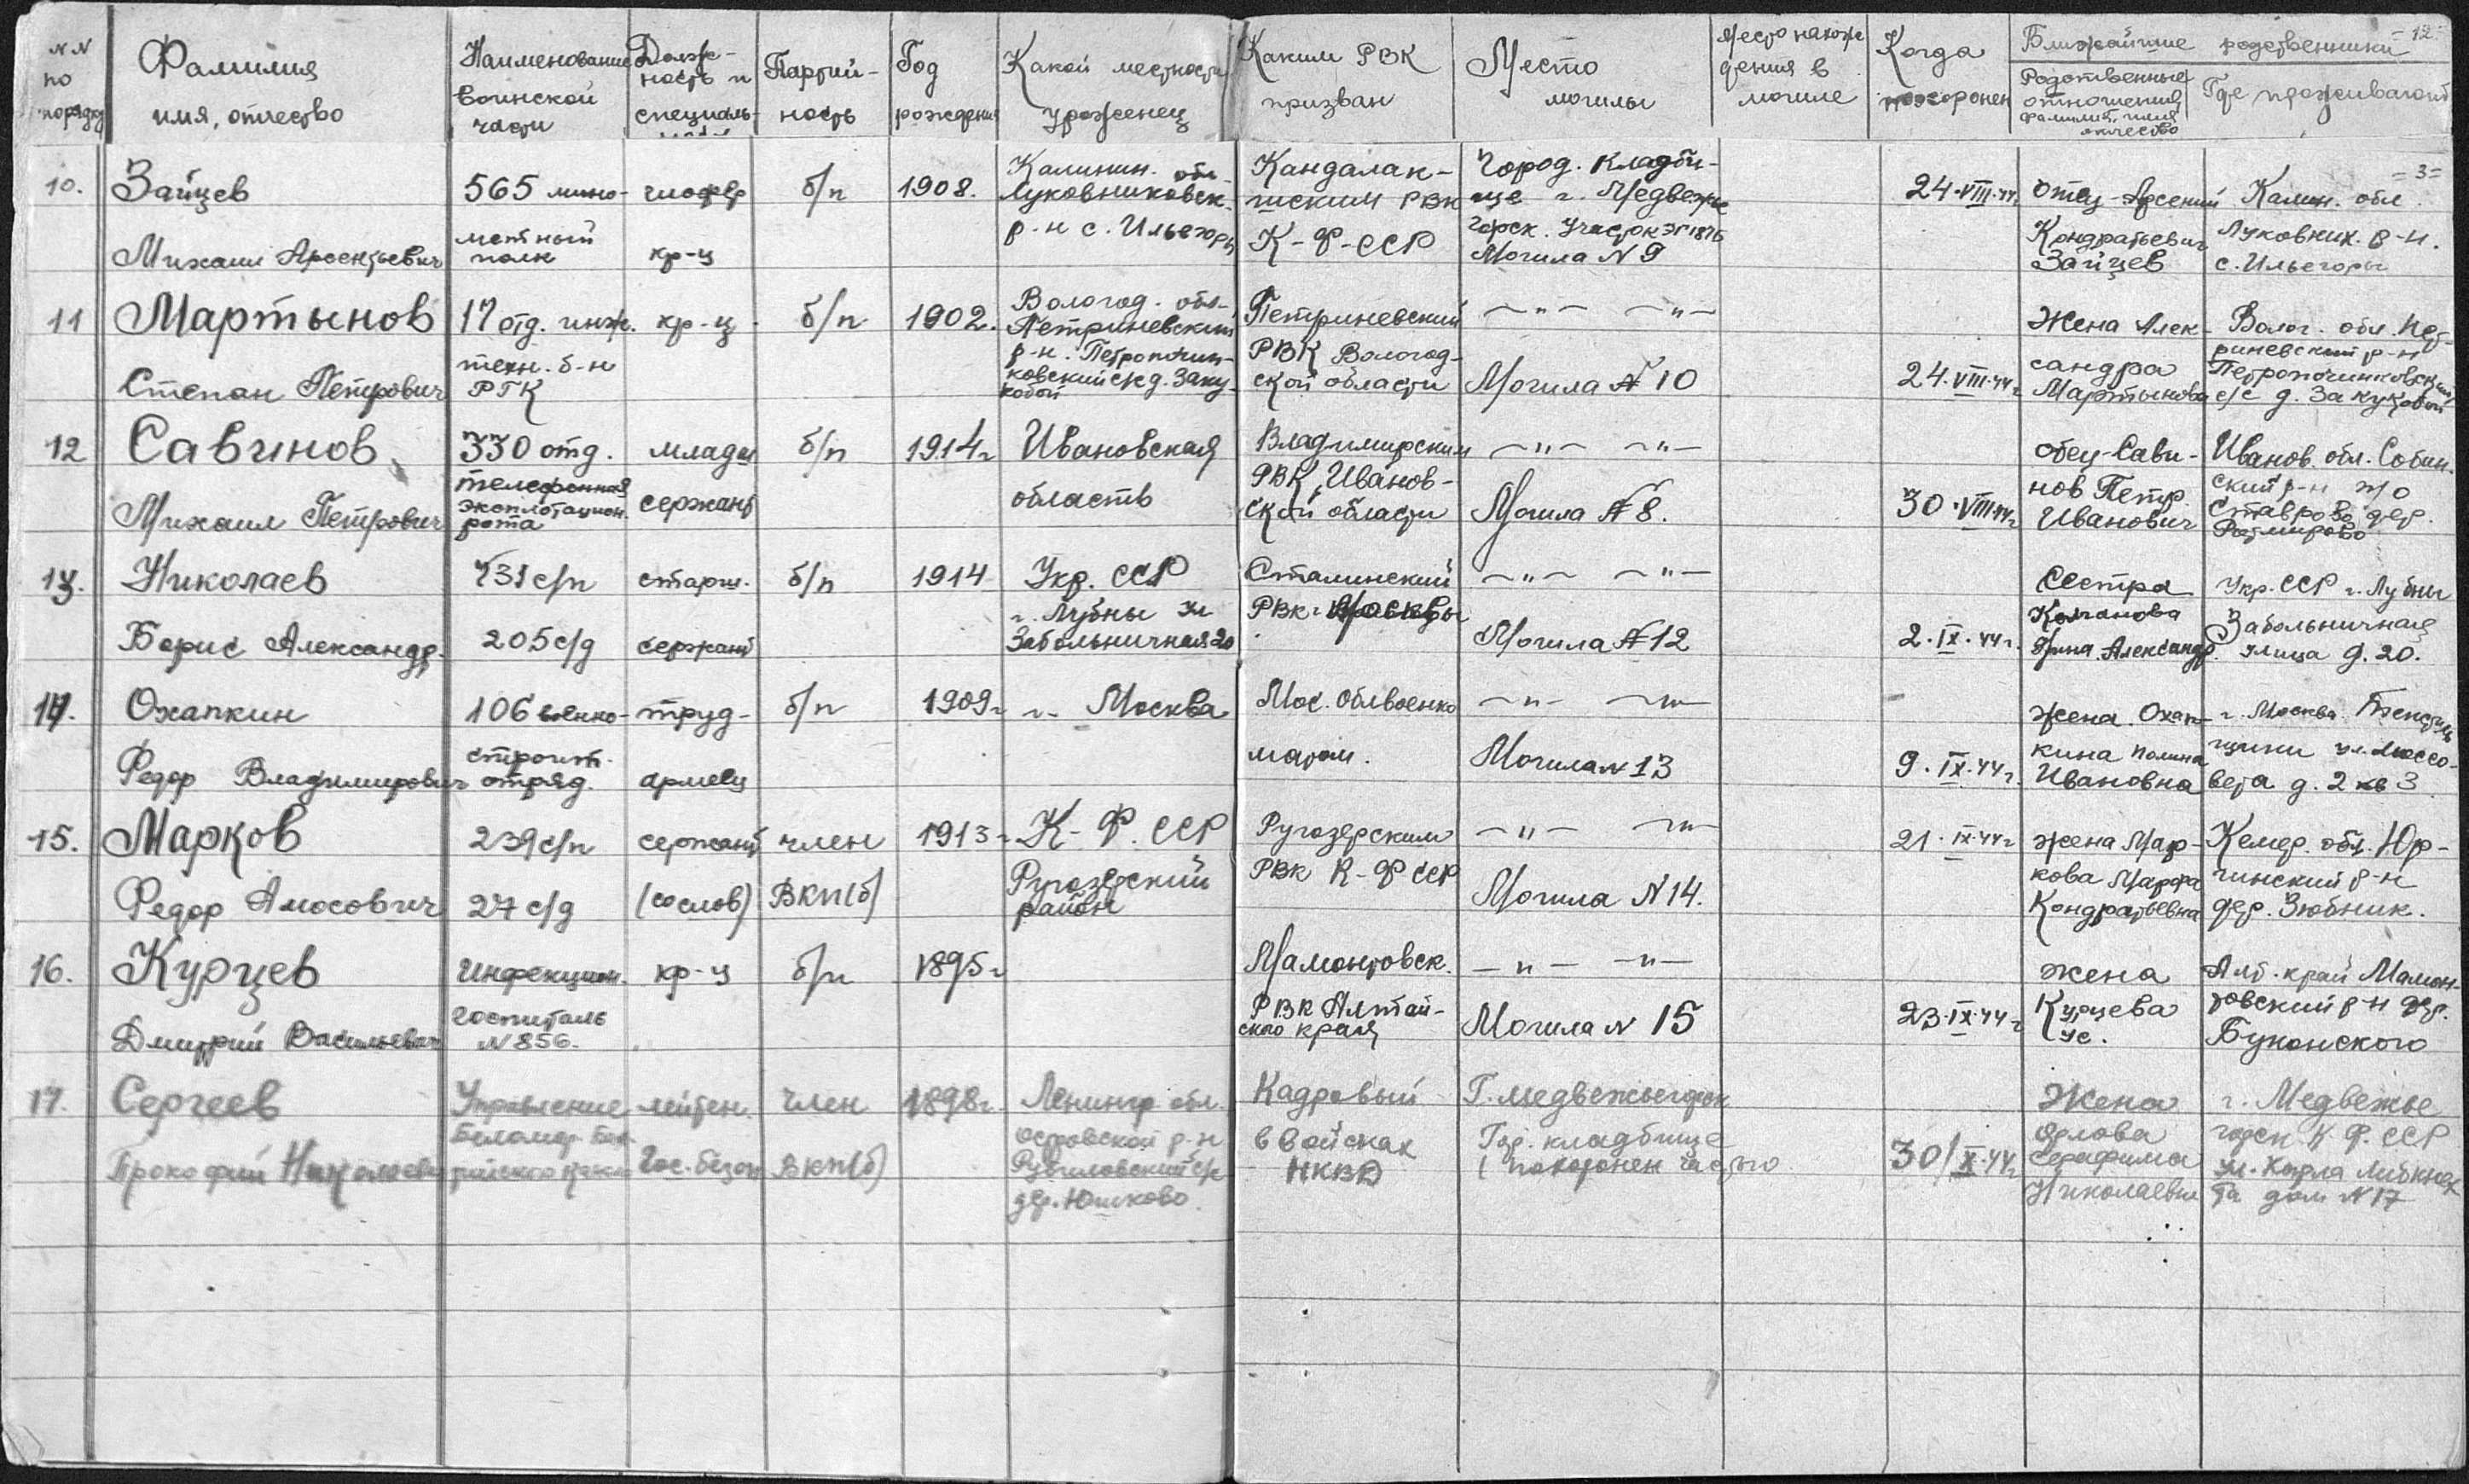 NN по порядку
Фамилия имя, отчество
Наименование воинской части
Должность и специаль-
Партий-ность
Год рождения
Какой местности уроженец
Каким РВК призван
Место могилы
Место нахож дения в могиле
Когда похоронен
Ближайшие родственники
-12-
Родственные отношения фамилия, имя отчество
Где проживают
-3-
10.
Зайцев
Михаил Арсентьевич
565 мино-
метный
полк
шофер
кр-ц
б/п
1908.
Калинин. обл.
Луковниковск.
р-н с. Ильегоры
Кандалак-
шским РВК
К-Ф-ССР
Город. кладби-
ще г. Медвежье
горск. Участок
Могила N 9
24.VIII.44г.
отец-Арсений
Кондратьевич
Зайцев
Калин. обл.
Луковник. р-н.
с. Ильегоры
11
Мартынов
Степан Петрович
17 отд. инж.
техн. б-н
РГК
кр-ц
б/п
1902.
Вологод. обл.
Петриневский
р-н. Петропочин-
ковский с/с д. Заку-
кобой
Петриневский
РВК Вологод-
ской области
—„— —„—
Могила № 10
24.VIII.44г.
Жена Алек-
сандра
Мартынова
Волог. обл. Пет-
риневский р-н
Петропочинковский
с/с д. Закукобой
12
Савинов
Михаил Петрович
330 отд.
телефонная
эксплотацион.
рота
младш
сержант
б/п
1914г
Ивановская
область
Владимирским
РВК, Иванов-
ской области
—„— —„—
Могила № 8.
30.VIII.44г.
отец-Сави-
нов Петр
Иванович
Иванов. обл. Собин.
ский р-н п/о
Ставрово дер.
Ратмирово
13.
Николаев
Борис Александр.
731 с/п
205 с/д
старш.
сержант
б/п
1914
Укр. ССР
г. Лубны ул
Забольничная 20
Сталинский
РВК г. Москвы
—„— —„—
Могила № 12
2.IX.44г.
Сестра
Нина Александр.
Укр. ССР г. Лубны
Забольничная
улица д. 20.
14.
Охапкин
Федор Владимирович
106 военно-
строит.
отряд.
труд-
армеец
б/п
1909г
г. Москва
Мос. Облвоенко
матом.
—„— —„—
Могила N 13
9.IX.44г.
жена. Охап-
кина Полина
Ивановна
г. Москва. Текстиль
щики ул. Моссо-
вета д. 2 кв 3
15.
Марков
Федор Амосович
239 с/п
27 с/д
сержант
(со слов)
член
ВКП(б)
1913г
К-Ф. ССР
Ругозерский
район
Ругозерским
РВК К-Ф ССР
—„— —„—
Могила N 14.
21.IX.44г
жена Мар-
кова Марфа
Кондратьевна
Кемер. обл. Юр-
гинский р-н
дер. Зюбник.
16.
Курцев
Дмитрий Васильевич
Инфекцион.
госпиталь
N 856.
кр-ц
б/п
1895г
Мамонтовск.
РВК Алтай-
ского края
—„— —„—
Могила N 15
23.IX.44г
жена
Курцева
Ус.
Алт. край Мамон-
товский р-н дер.
Буканского
17.
Сергеев
Прокофий Николаевич
Управление
Беломор. Бал-
тийского кан.
лейтен.
Гос. безоп
член
ВКП(б)
1898г.
Ленингр обл.
Островской р-н
дер. Юшково.
Кадровый
в войсках
НКВД
Г. Медвежьегорск
Гор. кладбище
(похоронен частью
30/X.44г
Жена
Орлова
Серафима
Николаевна
г. Медвежье
горск К. Ф. ССР
ул. Карла Либкнех
та дом N 17